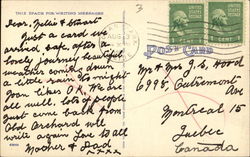 THIS SPACE FOR WRITING MESSAGES
Dear Nellie & Stuart
Just a card we
arrived safe, after a
lovely journey beautiful
weather coming down
a little rain to-night
Town likes OK. We are
all well. lots of people
just come back from
Old Orchard will
write again love to all
Mother & Dad
POST CARD
Mr & Mrs J. S. Hood
6995, Outremont
Ave
Montreal 15
Quebec
Canada